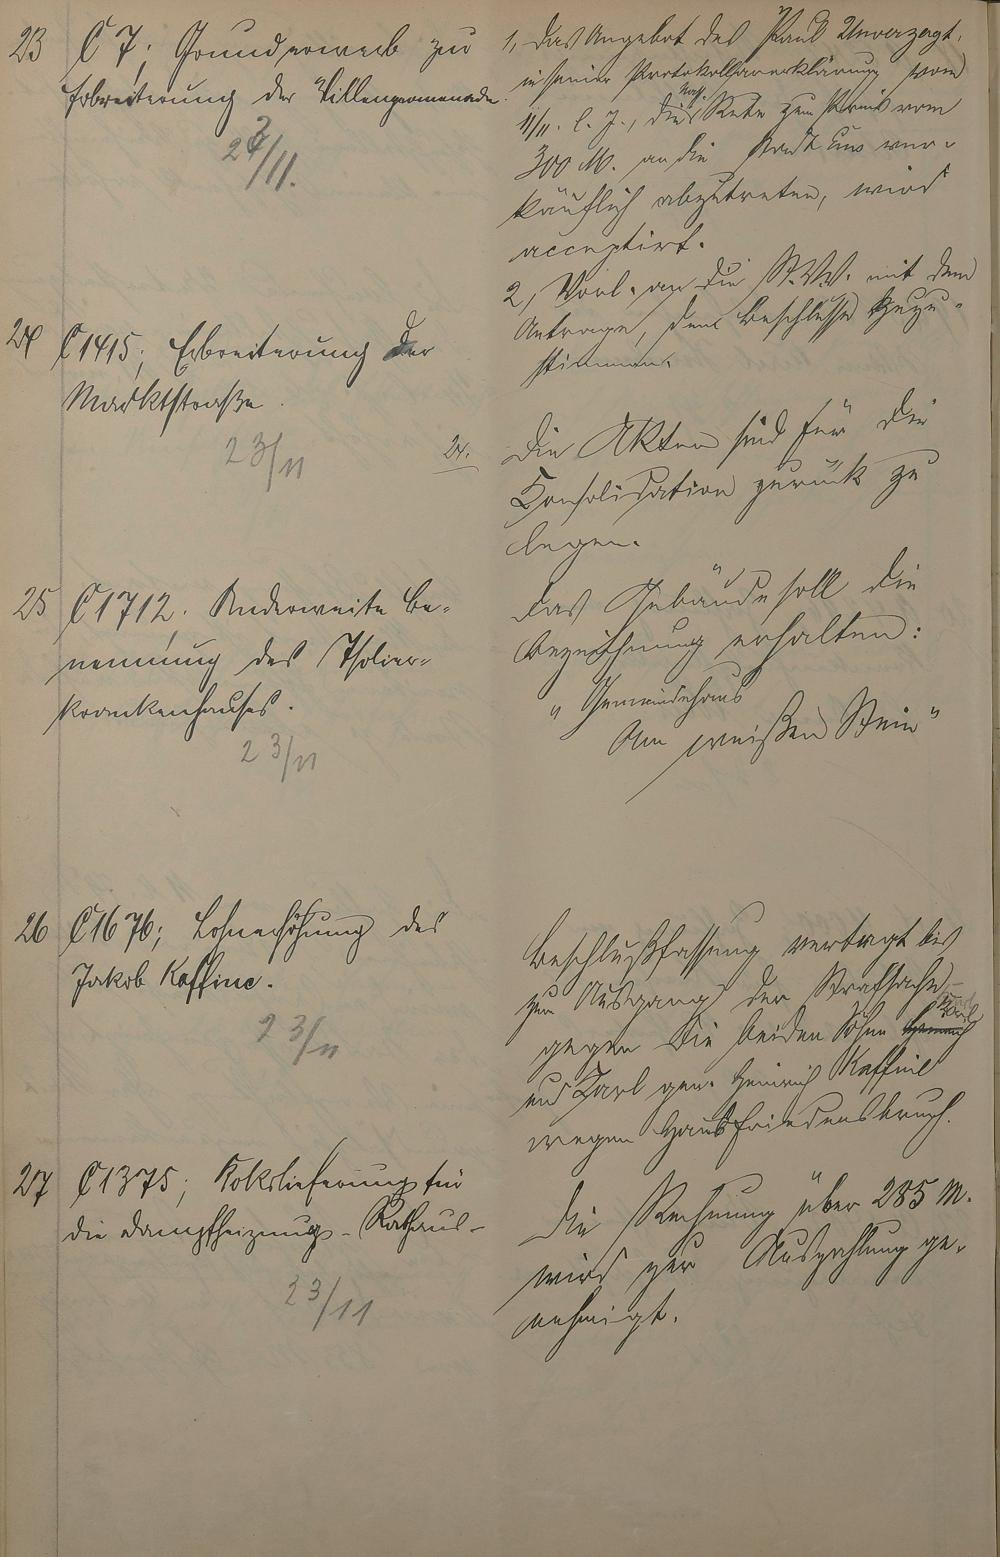 23 C 7; Grunderwerb zur
Erbreiterung der Villenpromenade.
23/11.
1, Das Angebot des Paul Unverzagt,
in seiner Protokollarerklärung vom
11/11. l. J., die Rute zum Preis von
300 M. an die Stadt Ems ver-
käuflich abzutreten, wird
acceptirt.
2, Vorl. an die St.V.V. mit dem
Antrage, dem Beschlusse zuzu-
stimmen.
24 C 1415; Erbreiterung der
Marktstraße.
23/11
24. Die Akten sind für die
Konsolidation zurück zu
legen.
25 C 1712. Anderweite Be-
nennung des Isolier-
krankenhauses.
23/11
Das Gebäude soll die
Bezeichnung erhalten:
"Gemeindehaus
Am weißen Stein"
26 C 1676; Lohnerhöhung des
Jakob Kaffine.
23/11
Beschlußfassung vertagt bis
zum Ausgang der Strafsache
gegen die beiden Söhne
und Karl gen. Heinrich Kaffine
wegen Hausfriedensbruch.
27 C 1375; Kokslieferung für
die Dampfheizung - Rathaus -
23/11
Die Rechnung über 285 M.
wird zur Auszahlung ge-
nehmigt.